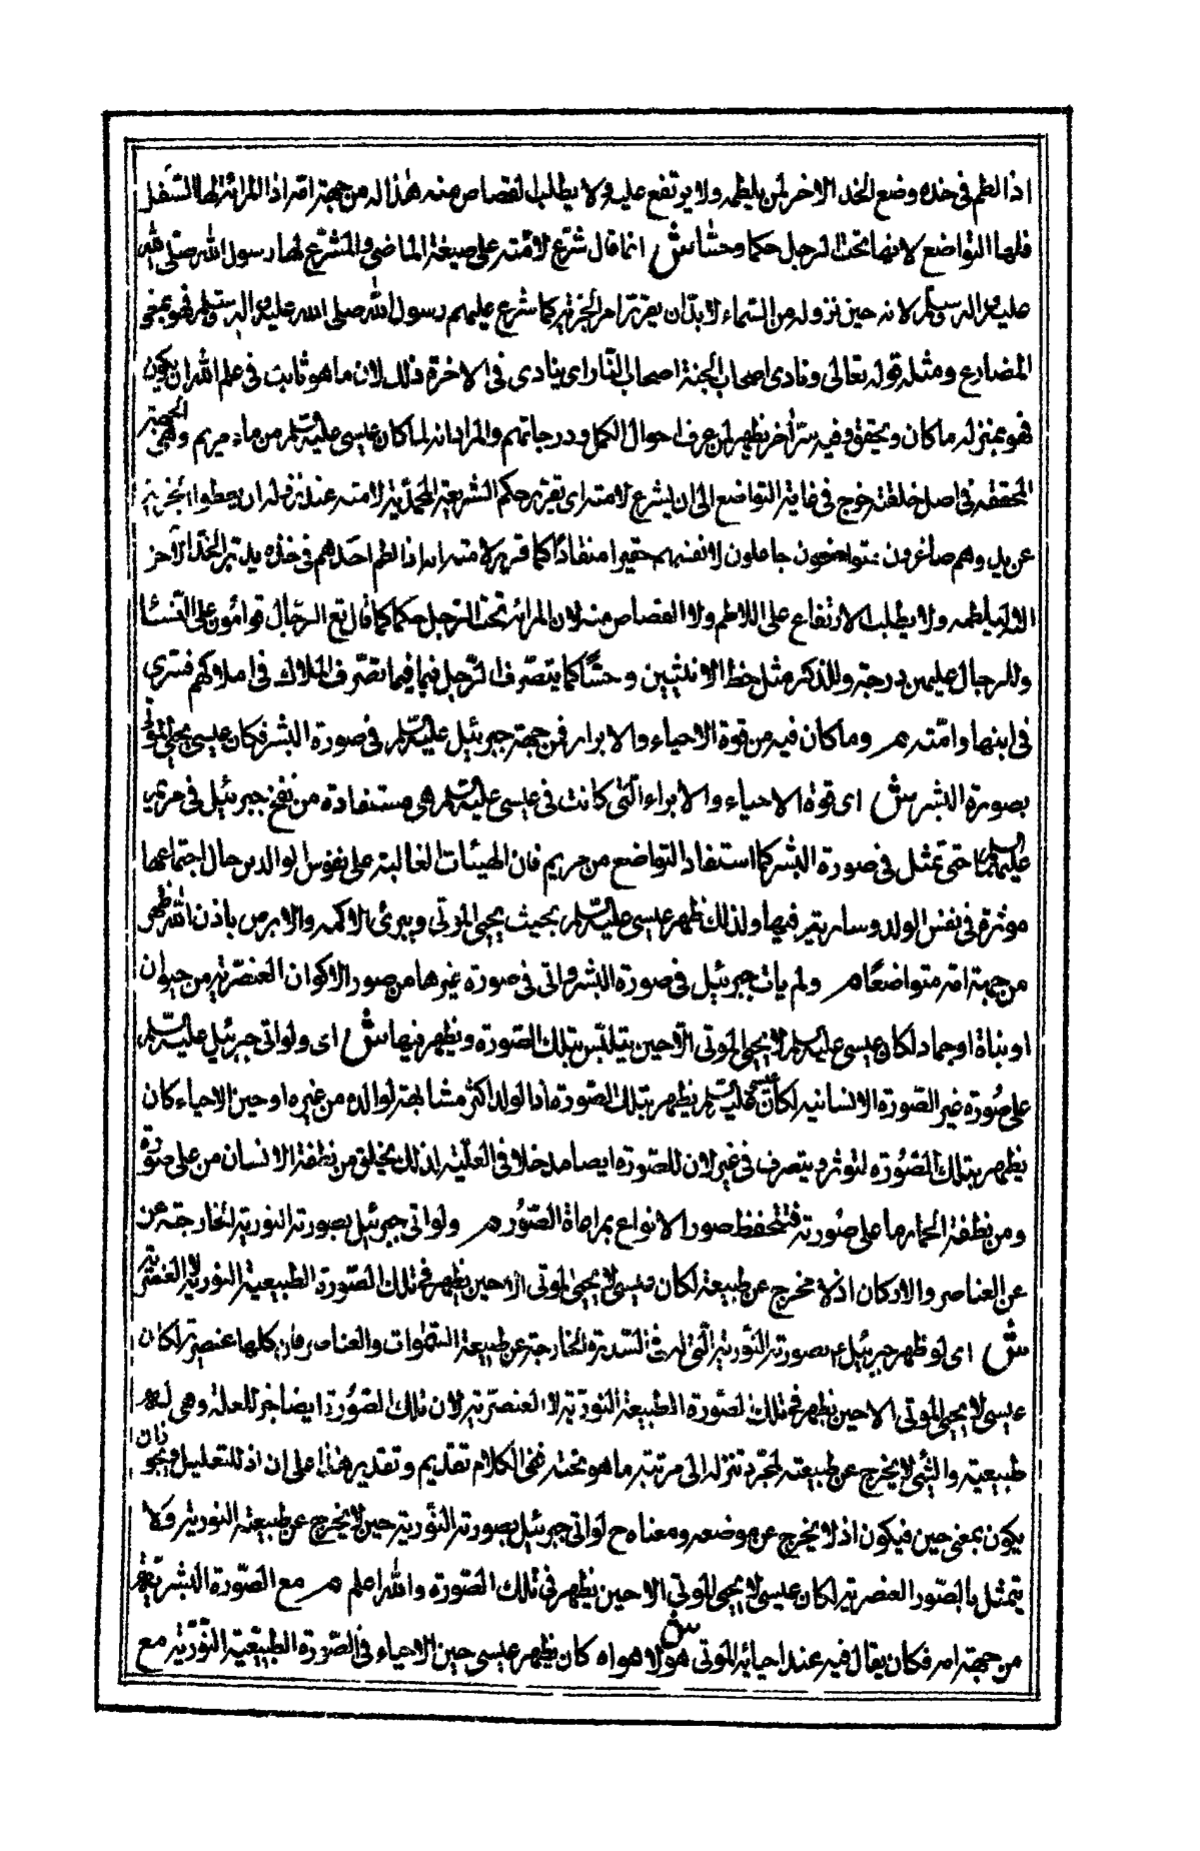 اذا لطم فى خده وضع الخد الاخر لمن يلطمه ولا يرتفع عليه ولا يطلب القصاص منه هذا له من جهة امه اذ المرائة لها السفل
فلها التواضع لانها تحت الرجل حكما وحسّا ش انما قال شرّع لامّته على صيغة الماضى والمشرّع لها رسول الله صلى الله
عليه واله وسلم لانه حين نزوله من السماء لا بدّ ان يقرّر امر الجزية كما شرع عليهم رسول الله صلى الله عليه واله وسلم فهو بمعنى
المضارع ومثله قوله تعالى ونادى اصحاب الجنة اصحاب النّار اى ينادى فى الاخرة ذلك لان ما هو ثابت فى علم الله ان يكون
فهو بمنزلة ما كان ويحقق وفيه سرّ اخر يظهر لمن عرف احوال الكمل ودرجاتهم والمراد انه لما كان عيسى عليه السلم من ماء مريم وهى الجهة
المحققه فى اصل خلقته خرج فى غاية التواضع الى ان يشرع لامته اى يقرّر حكم الشريعة المحمّدية لامته عند نزوله ان يعطوا الجزية
عن يد وهم صاغرون متواضعون جاعلون لانفسهم حقيرا منقادا كما قرر لامته انه اذا لطم احدهم فى خده يدير الخدّ الاخر
الى يلطمه ولا يطلب الارتفاع على اللاطم ولا القصاص منه لان المرائة تحت الرجل حكما كما قال تع الرّجال قوامون على النّساء
وللرجال عليهن درجة وللذكر مثل حظ الانثيين وحسّا كما يتصّرف الرّجل فيها فيما تصّرف الملاك فى املاكهم فترى
فى ابنها وامّته م وما كان فيه من قوة الاحياء والابراء فمن جهة جبرئيل عليه السلم فى صورة البشر فكان عيسى يحيى الموتى
بصورة البشر ش اى قوة الاحياء والابراء الّتى كانت فى عيسى عليه السلم هى مستفادة من نفخ جبرئيل فى مريم
عليهما السلم حتى تمثل فى صورة البشر كما استفاد التواضع من مريم فان الهيئات الغالبة على نفوس الوالدين حال اجتماعهما
موثرة فى نفس الولد وسارية فيها ولذلك ظهر عيسى عليه السلم بحيث يحيى الموتى ويبرئ الاكمه والابرص باذن الله ظهر
من جهة امه متواضعًا م ولم يات جبرئيل فى صورة البشر واتى فى صورة غيرها من صور الاكوان العنصّرية من حيوان
او نباة او جماد لكان عيسى عليه السلم لا يحيى الموتى الّا حين يتلبّس بتلك الصّورة ويظهر فيها ش اى ولو اتى جبرئيل عليه السلم
على صُورة غير الصّورة الانسانيه لكان عيسى عليه السلم يظهر بتلك الصّورة اذ الولد اكثر مشابهة لوالده من غيره او حين الاحياء كان
يظهر بتلك الصّورة لتوثر ويتصرف فى غير لان للصّورة ايضا مدخلا فى العلّية لذلك يخلق من نطفة الانسان من على صورة
ومن نطفة الحمار ما على صُورته فتنحفظ صور الانواع بمراعاة الصّوُر م ولو اتى جبرئيل بصورته النورية الخارجة عن
عن العناصر والاركان اذ لا مخرج عن طبيعته لكان عيسى لا يحيى الموتى الّا حين يظهر فى تلك الصّورة الطبيعية النورية لا العنصّرية
ش اى لو ظهر جبرئيل ع بصورته النّورية الّتى له فى السّدرة الخارجة عن طبيعة السّموات والعناصر فان كلها عنصرية لكان
عيسى لا يحيى الموتى الا حين يظهر فى تلك الصّورة الطّبيعة النّورّية لا العنصّرية لان تلك الصّورة ايضا جزء للعلة وهى له
طبيعيّة والشّئ لا يخرج عن طبيعته لمجرّد تنزله الى مرتبة ما هو تحته ففى الكلام تقديم وتقدير هذا على ان اذ للتعليل ويجوز ان
يكون بمعنى حين فيكون اذ لا يخرج عن موضعه ومعناه ح لو اتى جبرئيل بصورته النّورية حين لا يخرج عن طبيعته النورية ولا
يتمثل بالصّور العنصرية لكان عيسى لا يحيى الموتى الا حين يظهر فى تلك الصّورة والله اعلم م مع الصّورة البشرّية
من جهة امه فكان يقال فيه عند احيائه الموتى هو لا هو ش اى كان يظهر عيسى حين الاحياء فى الصّورة الطّبيعّية النّورّية مع